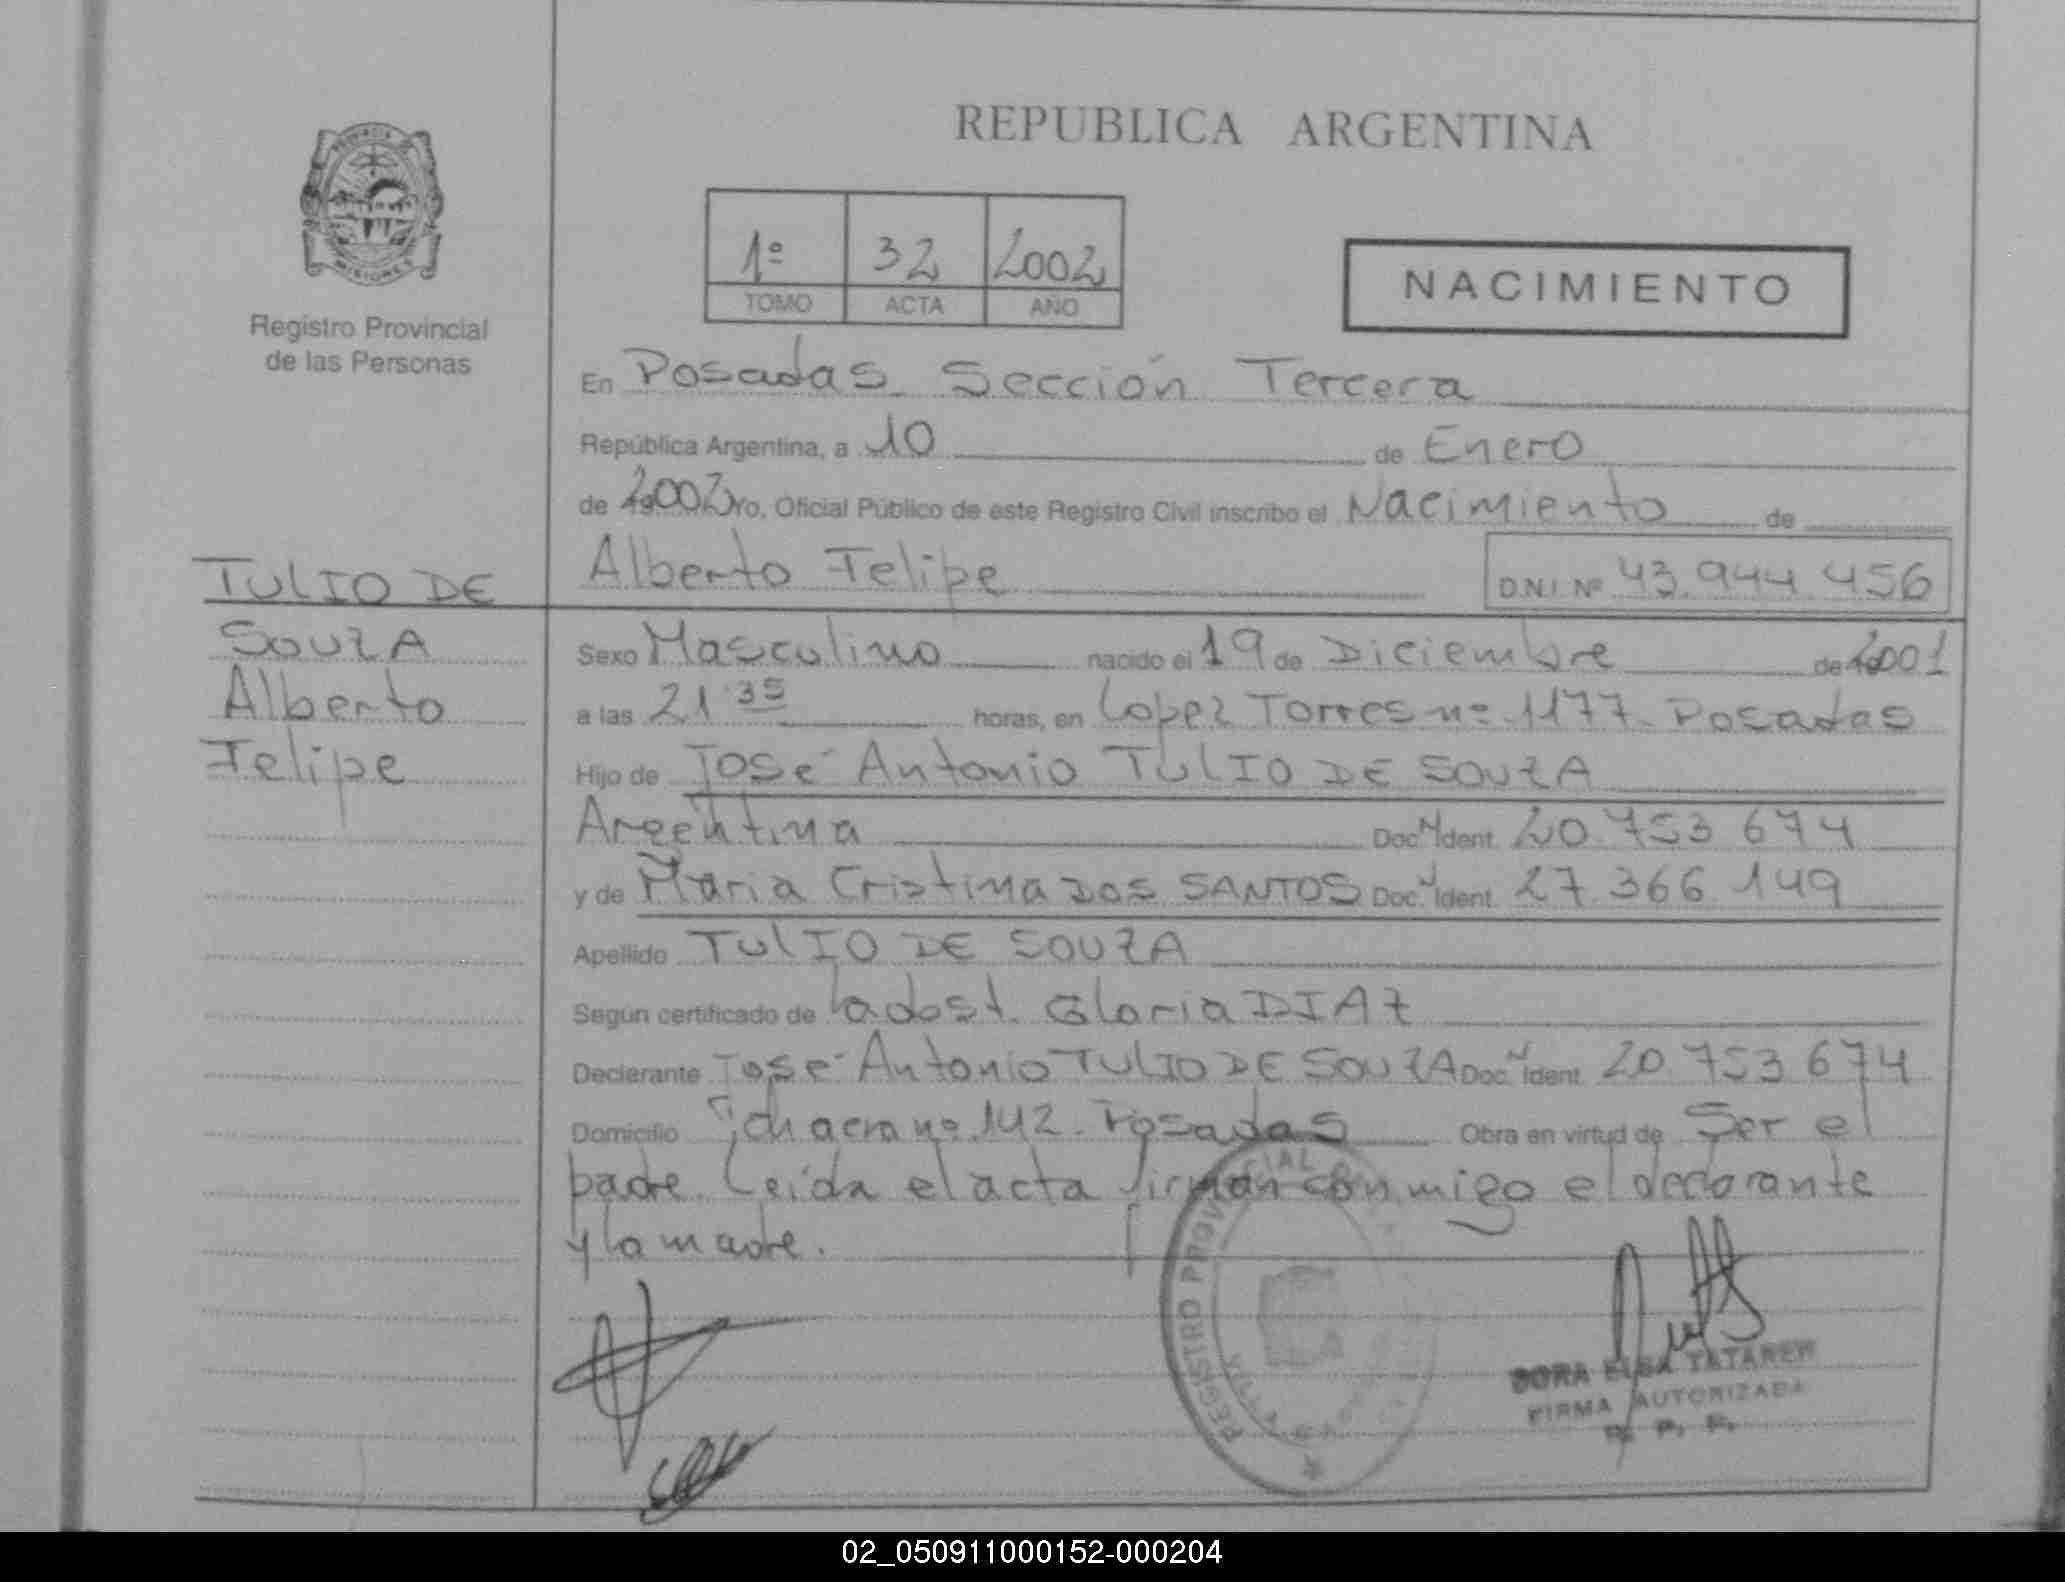 REPUBLICA ARGENTINA
PROVINCIA
MISIONES
Registro Provincial
de las Personas
1º 32 2002
TOMO ACTA AÑO
NACIMIENTO
En Posadas Sección Tercera
República Argentina, a 10 de Enero
de 2002 Yo, Oficial Público de este Registro Civil inscribo el Nacimiento de
Alberto Felipe D.N.I. Nº 43.944.456
TULIO DE
SOUZA
Alberto
Felipe
Sexo Masculino nacido el 19 de Diciembre de 2001
a las 21 35 horas, en Lopez Torres nº 1177 Posadas
Hijo de José Antonio TULIO DE SOUZA
Argentina Doc. N Ident. 20.753.674
y de Maria Cristina DOS SANTOS Doc. N Ident. 27.366.149
Apellido TULIO DE SOUZA
Según certificado de la obst. Gloria DIAZ
Declarante José Antonio TULIO DE SOUZA Doc. N Ident. 20.753.674
Domicilio chacra nº 142. Posadas Obra en virtud de Ser el
padre. Leída el acta firman conmigo el declarante
y la madre.
REGISTRO PROVINCIAL
VILLA
DORA ELSA TATAREN
FIRMA AUTORIZADA
R. P. P.
02_050911000152-000204